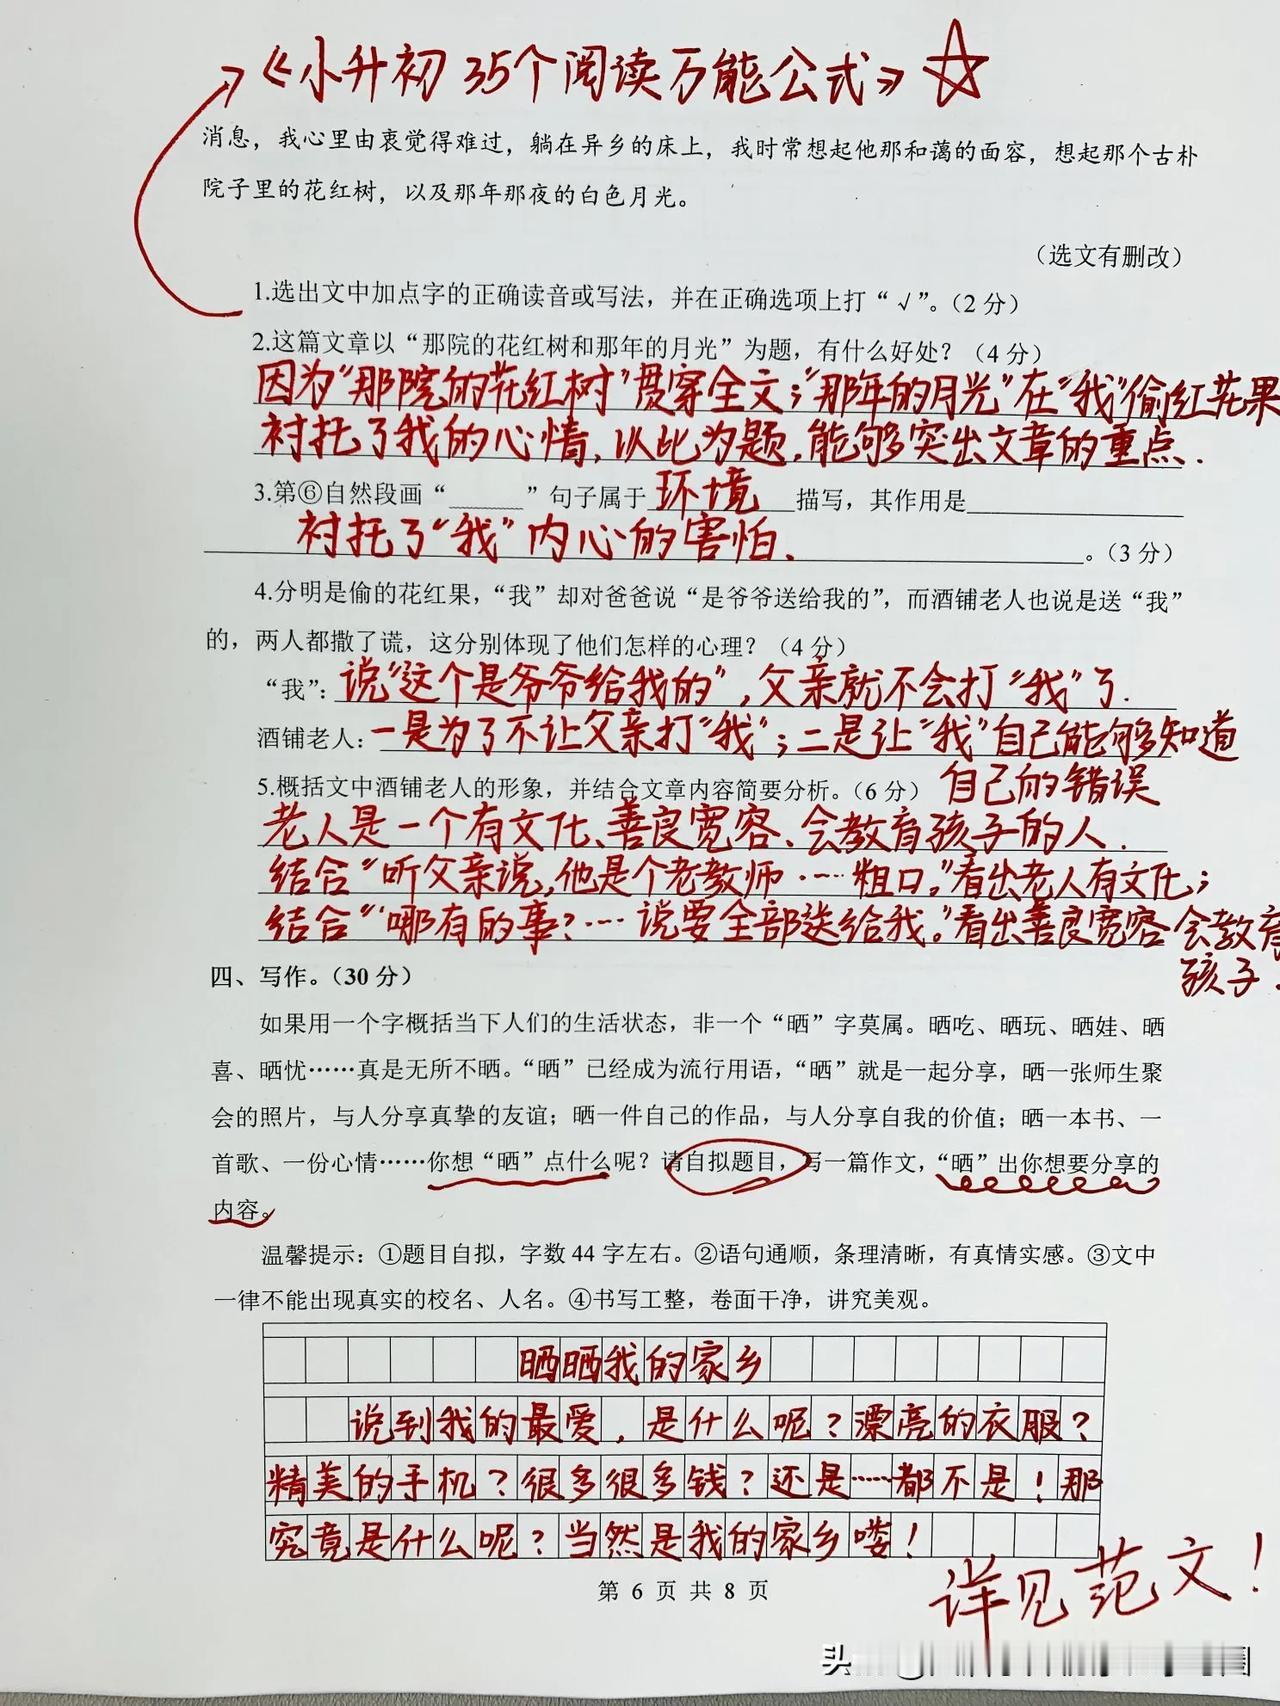 《小升初 35个阅读万能公式》☆
消息，我心里由衷觉得难过，躺在异乡的床上，我时常想起他那和蔼的面容，想起那个古朴
院子里的花红树，以及那年那夜的白色月光。
（选文有删改）
1.选出文中加点字的正确读音或写法，并在正确选项上打“√”。（2 分）
2.这篇文章以“那院的花红树和那年的月光”为题，有什么好处？（4 分）
因为“那院的花红树”贯穿全文；“那年的月光”在“我”偷红花果
衬托了我的心情，以此为题，能够突出文章的重点.
3.第⑥自然段画“______”句子属于 环境 描写，其作用是
衬托了“我”内心的害怕. 。（3 分）
4.分明是偷的花红果，“我”却对爸爸说“是爷爷送给我的”，而酒铺老人也说是送“我”
的，两人都撒了谎，这分别体现了他们怎样的心理？（4 分）
“我”： 说“这个是爷爷给我的”，父亲就不会打“我”了.
酒铺老人：一是为了不让父亲打“我”；二是让“我”自己能够知道
自己的错误
5.概括文中酒铺老人的形象，并结合文章内容简要分析。（6 分）
老人是一个有文化、善良宽容、会教育孩子的人.
结合“听父亲说，他是个老教师……粗口。”看出老人有文化；
结合“哪有的事？……说要全部送给我。”看出善良宽容 会教育
孩子.
四、写作。（30 分）
如果用一个字概括当下人们的生活状态，非一个“晒”字莫属。晒吃、晒玩、晒娃、晒
喜、晒忧……真是无所不晒。“晒”已经成为流行用语，“晒”就是一起分享，晒一张师生聚
会的照片，与人分享真挚的友谊；晒一件自己的作品，与人分享自我的价值；晒一本书、一
首歌、一份心情……你想“晒”点什么呢？请自拟题目，写一篇作文，“晒”出你想要分享的
内容。
温馨提示：①题目自拟，字数 44 字左右。②语句通顺，条理清晰，有真情实感。③文中
一律不能出现真实的校名、人名。④书写工整，卷面干净，讲究美观。
晒晒我的家乡
说到我的最爱，是什么呢？漂亮的衣服？
精美的手机？很多很多钱？还是……都不是！那
究竟是什么呢？当然是我的家乡喽！
第 6 页 共 8 页
详见范文！